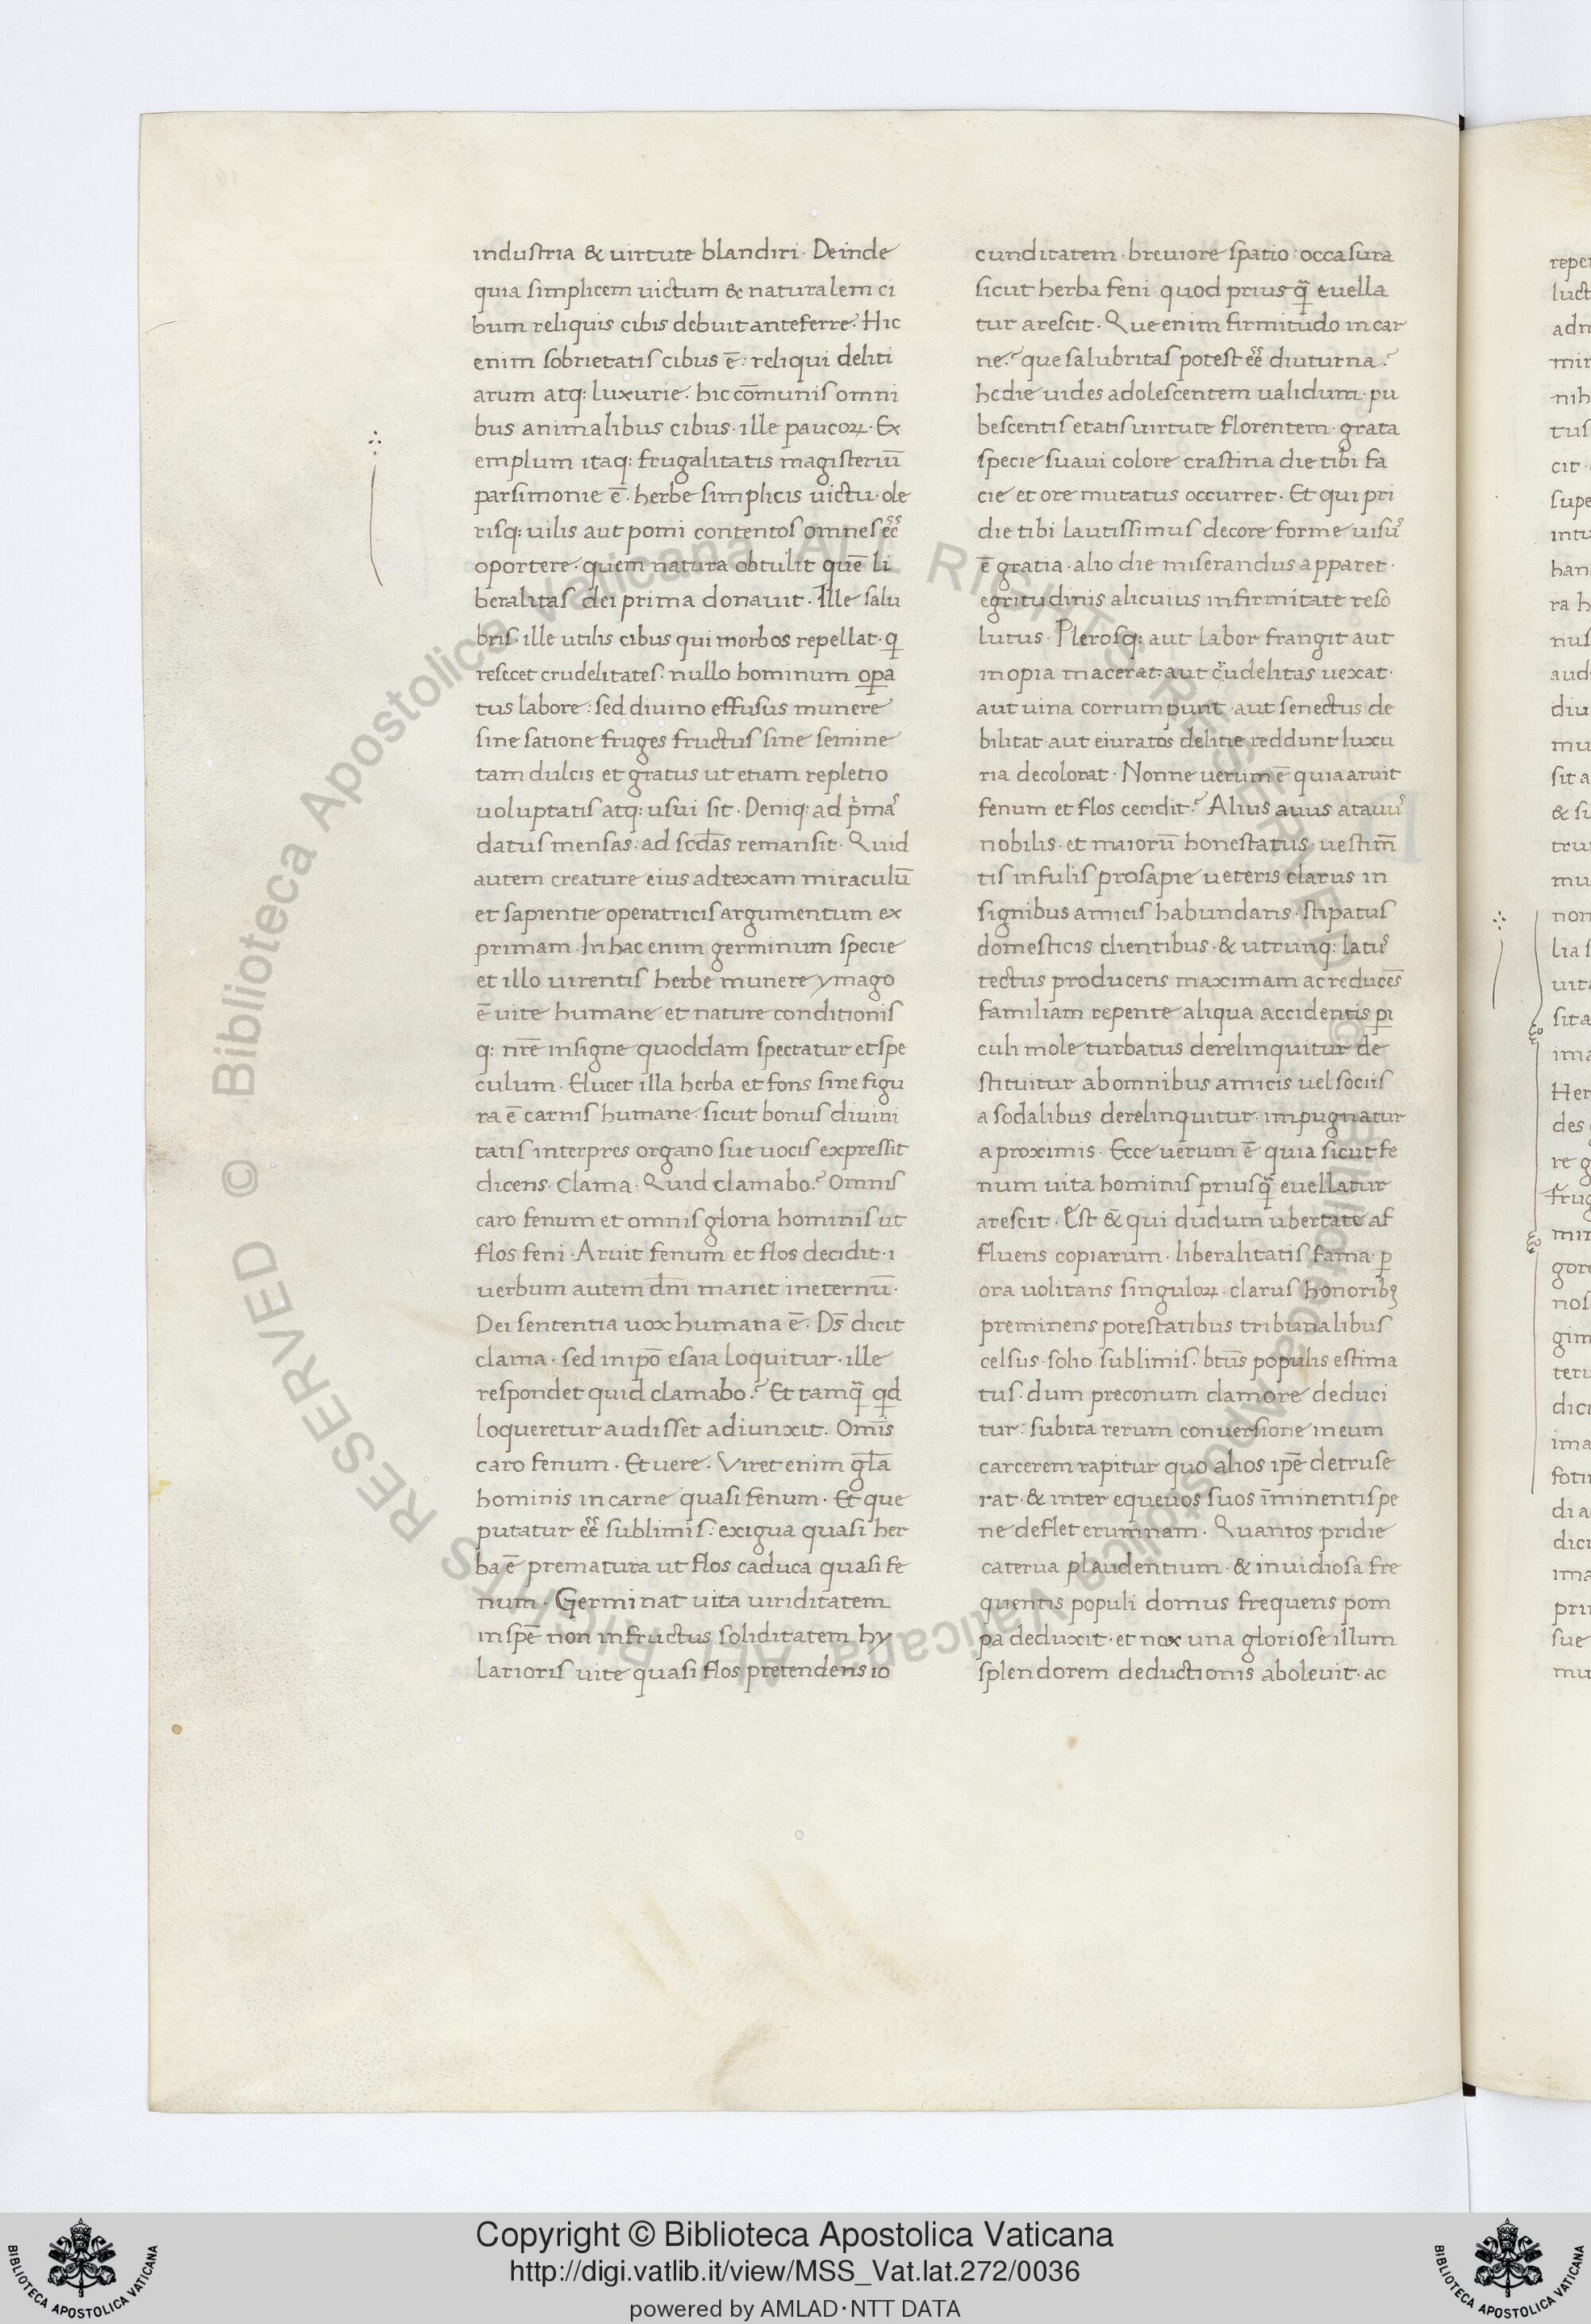 industria & uirtute blandiri· Deinde
quia simplicem uictum & naturalem ci
bum reliquis cibis debuit anteferre· Hic
enim sobrietatis cibus ē: reliqui deliti
arum atq: luxurie· hic cōmunis omni
bus animalibus cibus· ille paucoꝝ· Ex
emplum itaq: frugalitatis magisteriū
parsimonie ē· herbe simplicis uictu· ole
risq: uilis aut pomi contentos omnes ēē
oportere· quem natura obtulit quē li
beralitas dei prima donauit· Ille salu
bris· ille utilis cibus qui morbos repellat· q
resecet crudelitates· nullo hominum oꝑa
tus labore: sed diuino effusus munere
sine satione fruges fructus sine semine
tam dulcis et gratus ut etiam repletio
uoluptatis atq: usui sit· Deniq: ad p̓mas
datus mensas· ad scd̄as remansit· Quid
autem creature eius adtexam miraculū
et sapientie operatricis argumentum ex
primam· In hac enim germinum specie
et illo uirentis herbe munere ymago
ē uite humane et nature conditionis
q: nr̄e insigne quoddam spectatur et spe
culum· Elucet illa herba et fons sine figu
ra ē carnis humane· sicut bonus diuini
tatis interpres organo sue uocis expressit
dicens· Clama· Quid clamabo? Omnis
caro fenum et omnis gloria hominis ut
flos feni· Aruit fenum et flos decidit· i
uerbum autem dn̄i manet ineternū·
Dei sententia uox humana ē· Ds̄ dicit
clama· sed in ip̄o esaia loquitur· ille
respondet quid clamabo? Et tamq̄ qd
loqueretur audisset adiunxit· Omīs
caro fenum· Et uere· Viret enim gl̄a
hominis in carne quasi fenum· Et que
putatur ēē sublimis: exigua quasi her
ba ē prematura ut flos caduca quasi fe
num· Germinat uita uiriditatem
in spē non in fructus soliditatem hy
larioris uite quasi flos pretendens io
cunditatem· breuiore spatio: occasura
sicut herba feni· quod prius q̄ euella
tur arescit· Que enim firmitudo in car
ne? que salubritas potest ēē diuturna?
hodie uides adolescentem ualidum· pu
bescentis etatis uirtute florentem· grata
specie suaui colore crastina die tibi fa
cie et ore mutatus occurret· Et qui pri
die tibi lautissimus decore forme uisus
ē gratia· alio die miserandus apparet·
egritudinis alicuius infirmitate reso
lutus· Plerosq: aut labor frangit aut
inopia macerat· aut crudelitas uexat·
aut uina corrumpunt· aut senectus de
bilitat· aut eiuratos delitie reddunt luxu
ria decolorat· Nonne uerum ē quia aruit
fenum et flos cecidit? Alius auus atauus
nobilis· et maiorū honestatus· uestim̄
tis infulis prosapie ueteris clarus in
signibus amicis habundans· stipatus
domesticis clientibus· & utrunq: latus
tectus producens maximam ac reducēs
familiam repente aliqua accidentis ꝑi
culi mole turbatus derelinquitur de
stituitur ab omnibus amicis uel sociis
a sodalibus derelinquitur· impugnatur
a proximis· Ecce uerum ē quia sicut fe
num uita hominis priusq̄ euellatur
arescit· Est & qui dudum ubertate af
fluens copiarum· liberalitatis fama· ꝑ
ora uolitans singuloꝝ· clarus honorib;
preminens potestatibus tribunalibus
celsus· solio sublimis· bt̄us populis estima
tus· dum preconum clamore deduci
tur: subita rerum conuersione in eum
carcerem rapitur quo alios ip̄e detruse
rat· & inter equeuos suos īminentis pe
ne deflet erumnam· Quantos pridie
caterua plaudentium· & inuidiosa fre
quentis populi domus frequens pom
pa deduxit· et nox una gloriose illum
splendorem deductionis aboleuit· ac
Copyright © Biblioteca Apostolica Vaticana
http://digi.vatlib.it/view/MSS_Vat.lat.272/0036
powered by AMLAD·NTT DATA